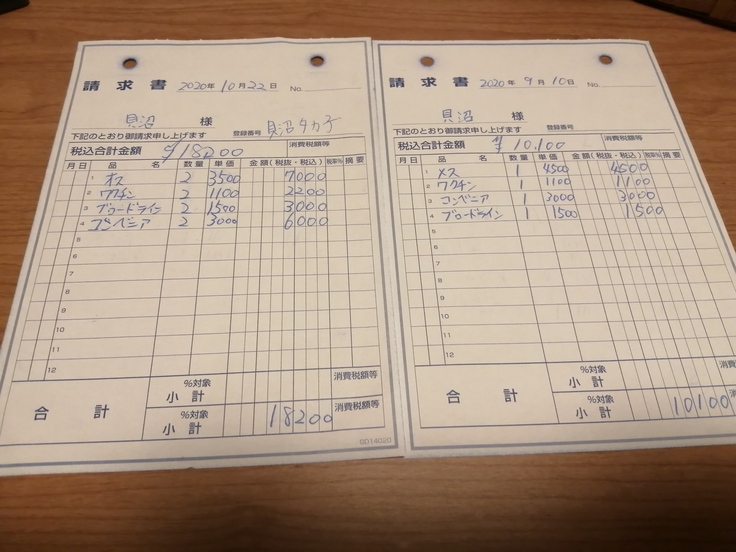 請求書 2020年10月22日 No.
貝沼 様
下記のとおり御請求申し上げます 登録番号 貝沼タカ子
税込合計金額 ¥18200 消費税額等
月日 品名 数量 単価 金額(税抜・税込) 税率% 摘要
1 オス 2 3500 7000
2 ワクチン 2 1100 2200
3 ブロードライン 2 1500 3000
4 コンベニア 2 3000 6000
5
6
7
8
9
10
11
12
合計
%対象 小計 消費税額等
%対象 小計 18200 消費税額等
BD14020
請求書 2020年9月10日 No.
貝沼 様
下記のとおり御請求申し上げます 登録番号
税込合計金額 ¥10,100 消費税額等
月日 品名 数量 単価 金額(税抜・税込) 税率% 摘要
1 メス 1 4500 4500
2 ワクチン 1 1100 1100
3 コンベニア 1 3000 3000
4 ブロードライン 1 1500 1500
5
6
7
8
9
10
11
12
合計
%対象 小計 消費税額等
%対象 小計 10100 消